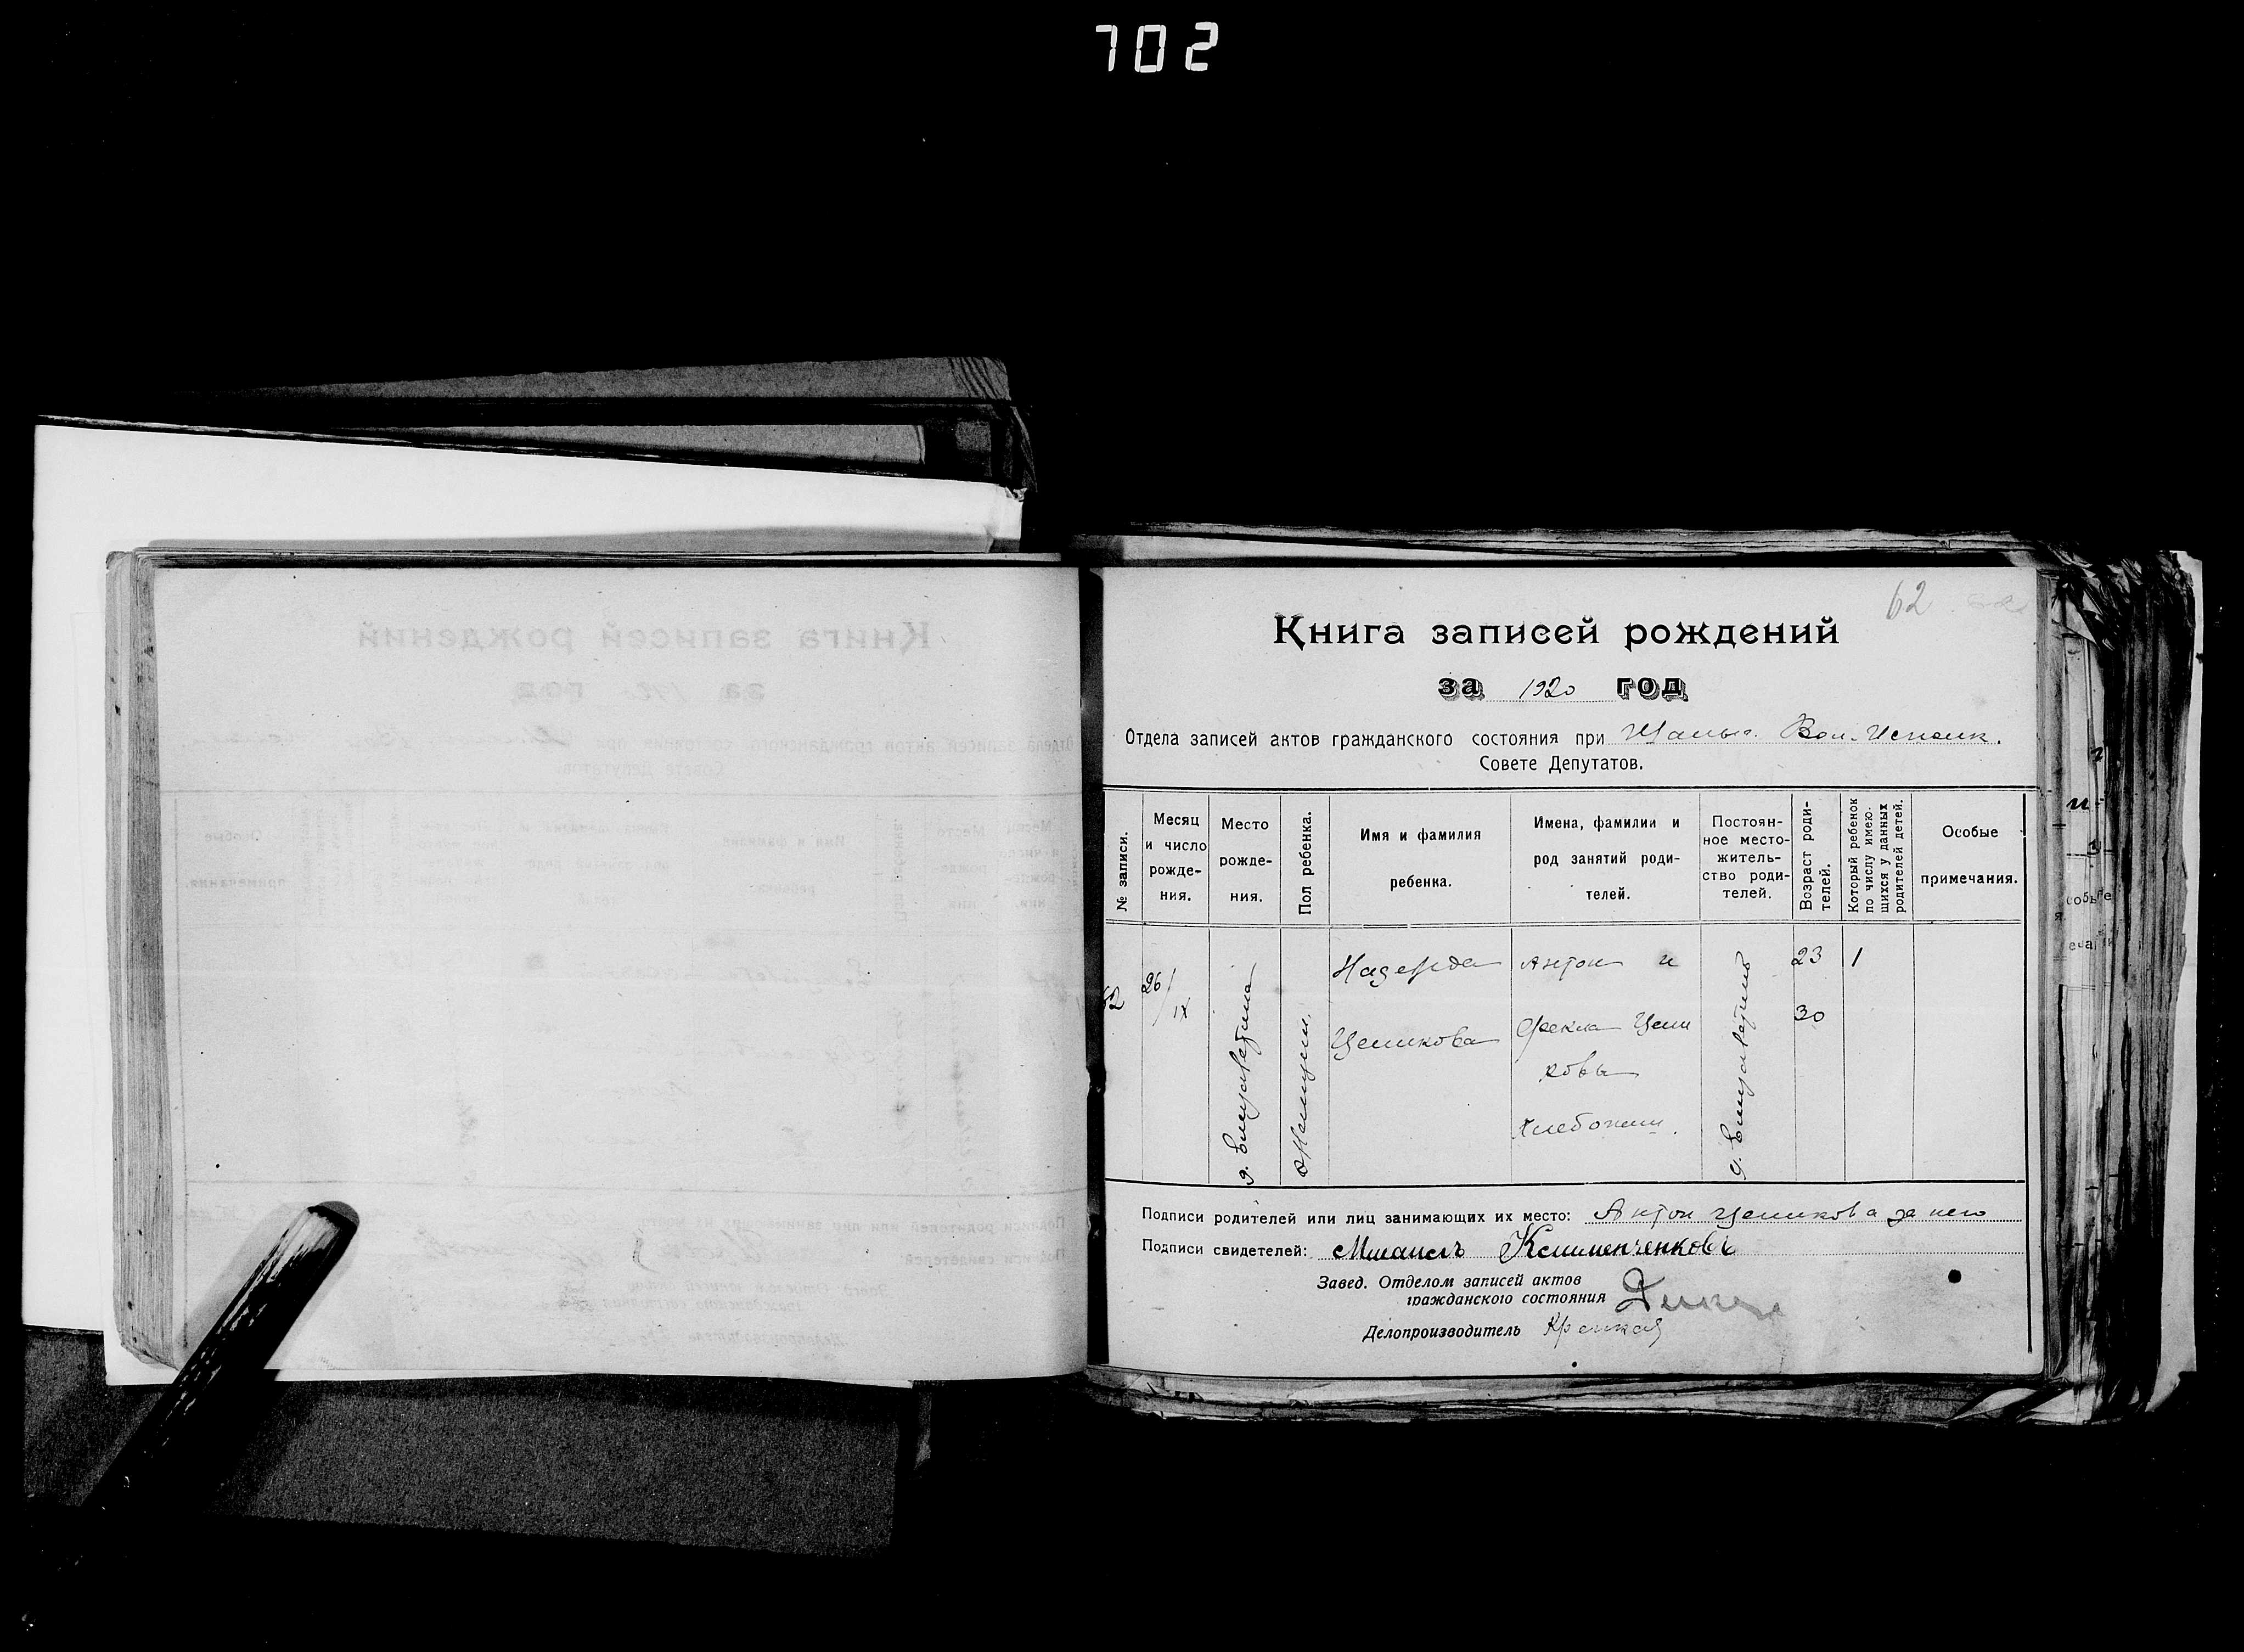 702
62
Книга записей рождений
за 1920 год
Отдела записей актов гражданского состояния при Вол. Исполк.
Совете Депутатов.
№ записи.
Месяц и число рожде-ния.
Место рожде-ния.
Пол ребенка.
Имя и фамилия ребенка.
Имена, фамилии и род занятий роди-телей.
Постоян-ное место-житель-ство роди-телей.
Возраст роди-телей.
Который ребенок по числу имею-щихся у данных родителей детей.
Особые примечания.
62
26/IX
д. Елизаветина
Женщин.
Надежда
Целикова
Антон и
Фекла Цели
ковы
Хлебопаш.
д. Елизаветино
23
30
1
Подписи родителей или лиц занимающих их место: Антон Целикова за него
Подписи свидетелей: Михаилъ
Завед. Отделом записей актов
гражданского состояния
Делопроизводитель